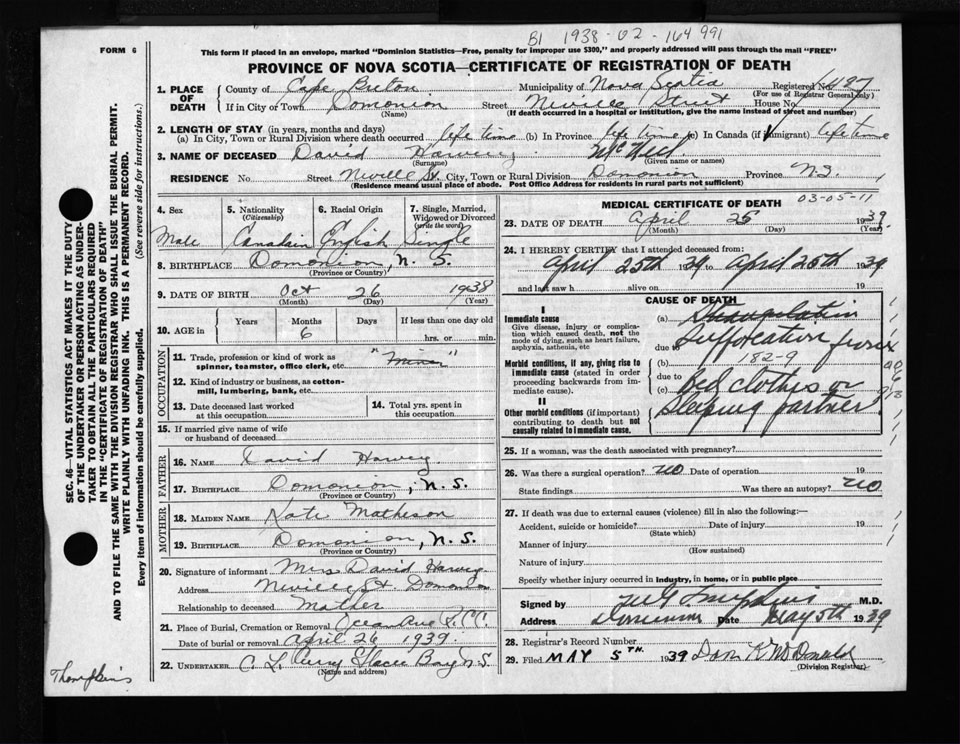 B1 1938-02-164991
FORM 6
This form if placed in an envelope, marked "Dominion Statistics—Free, penalty for improper use $300," and properly addressed will pass through the mail "FREE"
PROVINCE OF NOVA SCOTIA—CERTIFICATE OF REGISTRATION OF DEATH
SEC. 46—VITAL STATISTICS ACT MAKES IT THE DUTY
OF THE UNDERTAKER OR PERSON ACTING AS UNDER-
TAKER TO OBTAIN ALL THE PARTICULARS REQUIRED
IN THE "CERTIFICATE OF REGISTRATION OF DEATH"
AND TO FILE THE SAME WITH THE DIVISION REGISTRAR WHO SHALL ISSUE THE BURIAL PERMIT.
(See reverse side for instructions.)
WRITE PLAINLY WITH UNFADING INK. THIS IS A PERMANENT RECORD.
Every item of information should be carefully supplied.
1. PLACE OF DEATH
County of Cape Breton Municipality of Nova Scotia Registered No. 497
(For use of Registrar General only)
If in City or Town Domonion Street Neville Street House No.
(Name) (If death occurred in a hospital or institution, give the name instead of street and number)
2. LENGTH OF STAY (in years, months and days)
(a) In City, Town or Rural Division where death occurred life time (b) In Province life time (c) In Canada (if immigrant) life time
3. NAME OF DECEASED David Harvey McNeil
(Surname) (Given name or names)
RESIDENCE No. Street Neville St. City, Town or Rural Division Domonion Province N.S.
(Residence means usual place of abode. Post Office Address for residents in rural parts not sufficient)
4. Sex
Male
5. Nationality
(Citizenship)
Canadain
6. Racial Origin
English
7. Single, Married,
Widowed or Divorced
(write the word)
Single
8. BIRTHPLACE Domonion, N. S.
(Province or Country)
9. DATE OF BIRTH Oct 26 1938
(Month) (Day) (Year)
10. AGE in
Years Months Days If less than one day old
6 hrs. or min.
OCCUPATION
11. Trade, profession or kind of work as
spinner, teamster, office clerk, etc.
12. Kind of industry or business, as cotton-
mill, lumbering, bank, etc.
13. Date deceased last worked
at this occupation
14. Total yrs. spent in
this occupation
15. If married give name of wife
or husband of deceased
FATHER
16. NAME David Harvey
17. BIRTHPLACE Domonion, N.S.
(Province or Country)
MOTHER
18. MAIDEN NAME Kate Matheson
19. BIRTHPLACE Domonion, N.S.
(Province or Country)
20. Signature of informant Mrs David Harvey
Address Neville St Domonion
Relationship to deceased Mother
21. Place of Burial, Cremation or Removal Ocean Ave
Date of burial or removal April 26 1939.
22. UNDERTAKER Glace Bay N.S.
(Name and address)
Thompkins
MEDICAL CERTIFICATE OF DEATH
03-05-11
23. DATE OF DEATH April 25 1939
(Month) (Day) (Year)
24. I HEREBY CERTIFY that I attended deceased from:
April 25th 1939 to April 25th 1939
and last saw h alive on 19
CAUSE OF DEATH
I
Immediate cause
Give disease, injury or complica-
tion which caused death, not the
mode of dying, such as heart failure,
asphyxia, asthenia, etc
Morbid conditions, if any, giving rise to
immediate cause (stated in order
proceeding backwards from im-
mediate cause).
II
Other morbid conditions (if important)
contributing to death but not
causally related to immediate cause.
(a) Strangulation
due to Suffocation from
(b) 182-9
due to
(c) Bed clothes or
sleeping partner
25. If a woman, was the death associated with pregnancy?
26. Was there a surgical operation? no Date of operation 19
State findings Was there an autopsy? no
27. If death was due to external causes (violence) fill in also the following:—
Accident, suicide or homicide? Date of injury 19
(State which)
Manner of injury
(How sustained)
Nature of injury
Specify whether injury occurred in industry, in home, or in public place
Signed by M.D.
Address Dominion Date May 5th 1939
28. Registrar's Record Number
29. Filed MAY 5TH. 1939 McDonald
(Division Registrar)